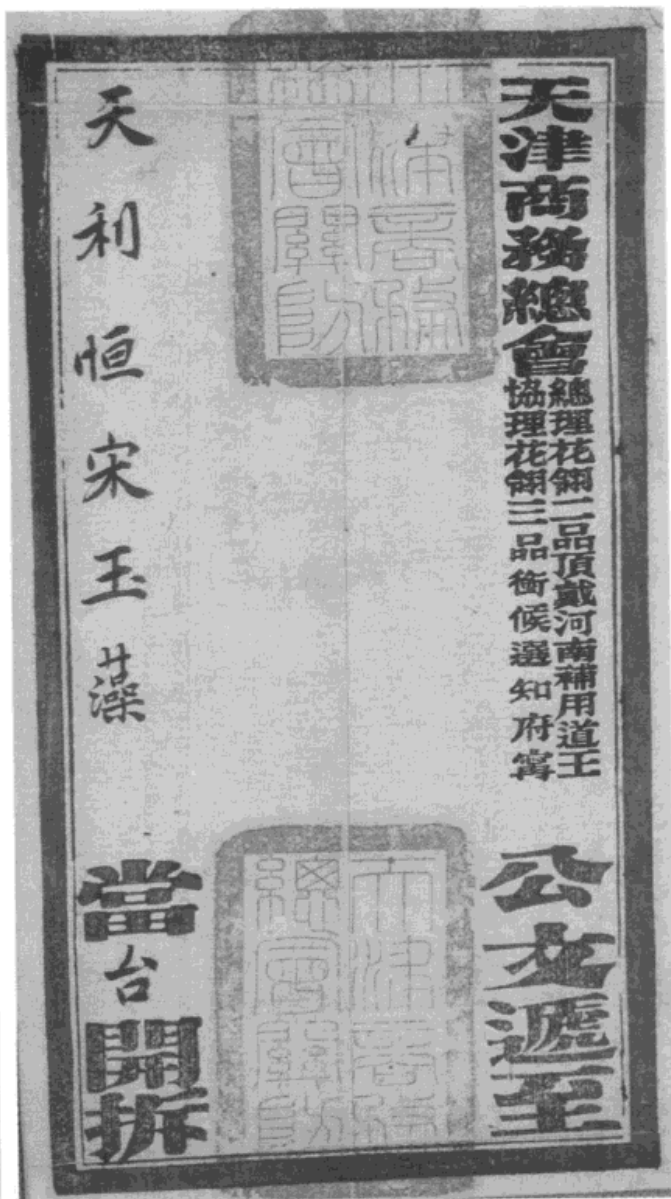 天津商務總會
總理花翎二品頂戴河南補用道王
協理花翎三品銜候選知府寗
公文遞至
天津商務
總會關防
天津商務
總會關防
天利恒宋玉藻
當台開拆